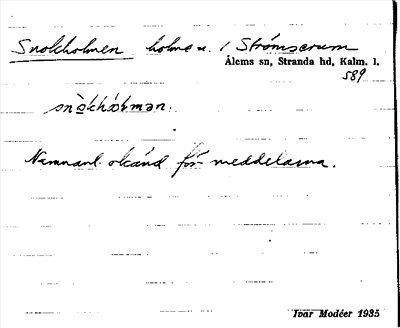 Snokholmen holme u. / Strömserum
Ålems sn, Stranda hd, Kalm. l.
589
snòkhòłmən.
Namnanl. okänd för meddelarna.
Ivar Modéer 1935